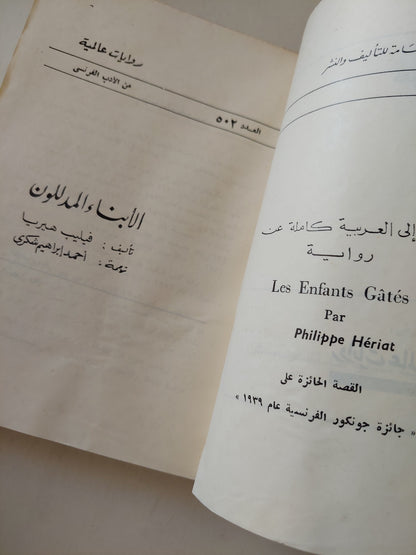 روايات عالمية
من الأدب الفرنسى
العدد ٥٠٢
الأبناء المدللون
تأليف : فيليب هيريا
ترجمة : أحمد إبراهيم فكري
للتأليف والنشر
إلى العربية كاملة عن
رواية
Les Enfants Gâtés
Par
Philippe Hériat
القصة الحائزة على
« جائزة جونكور الفرنسية عام ١٩٣٩ »